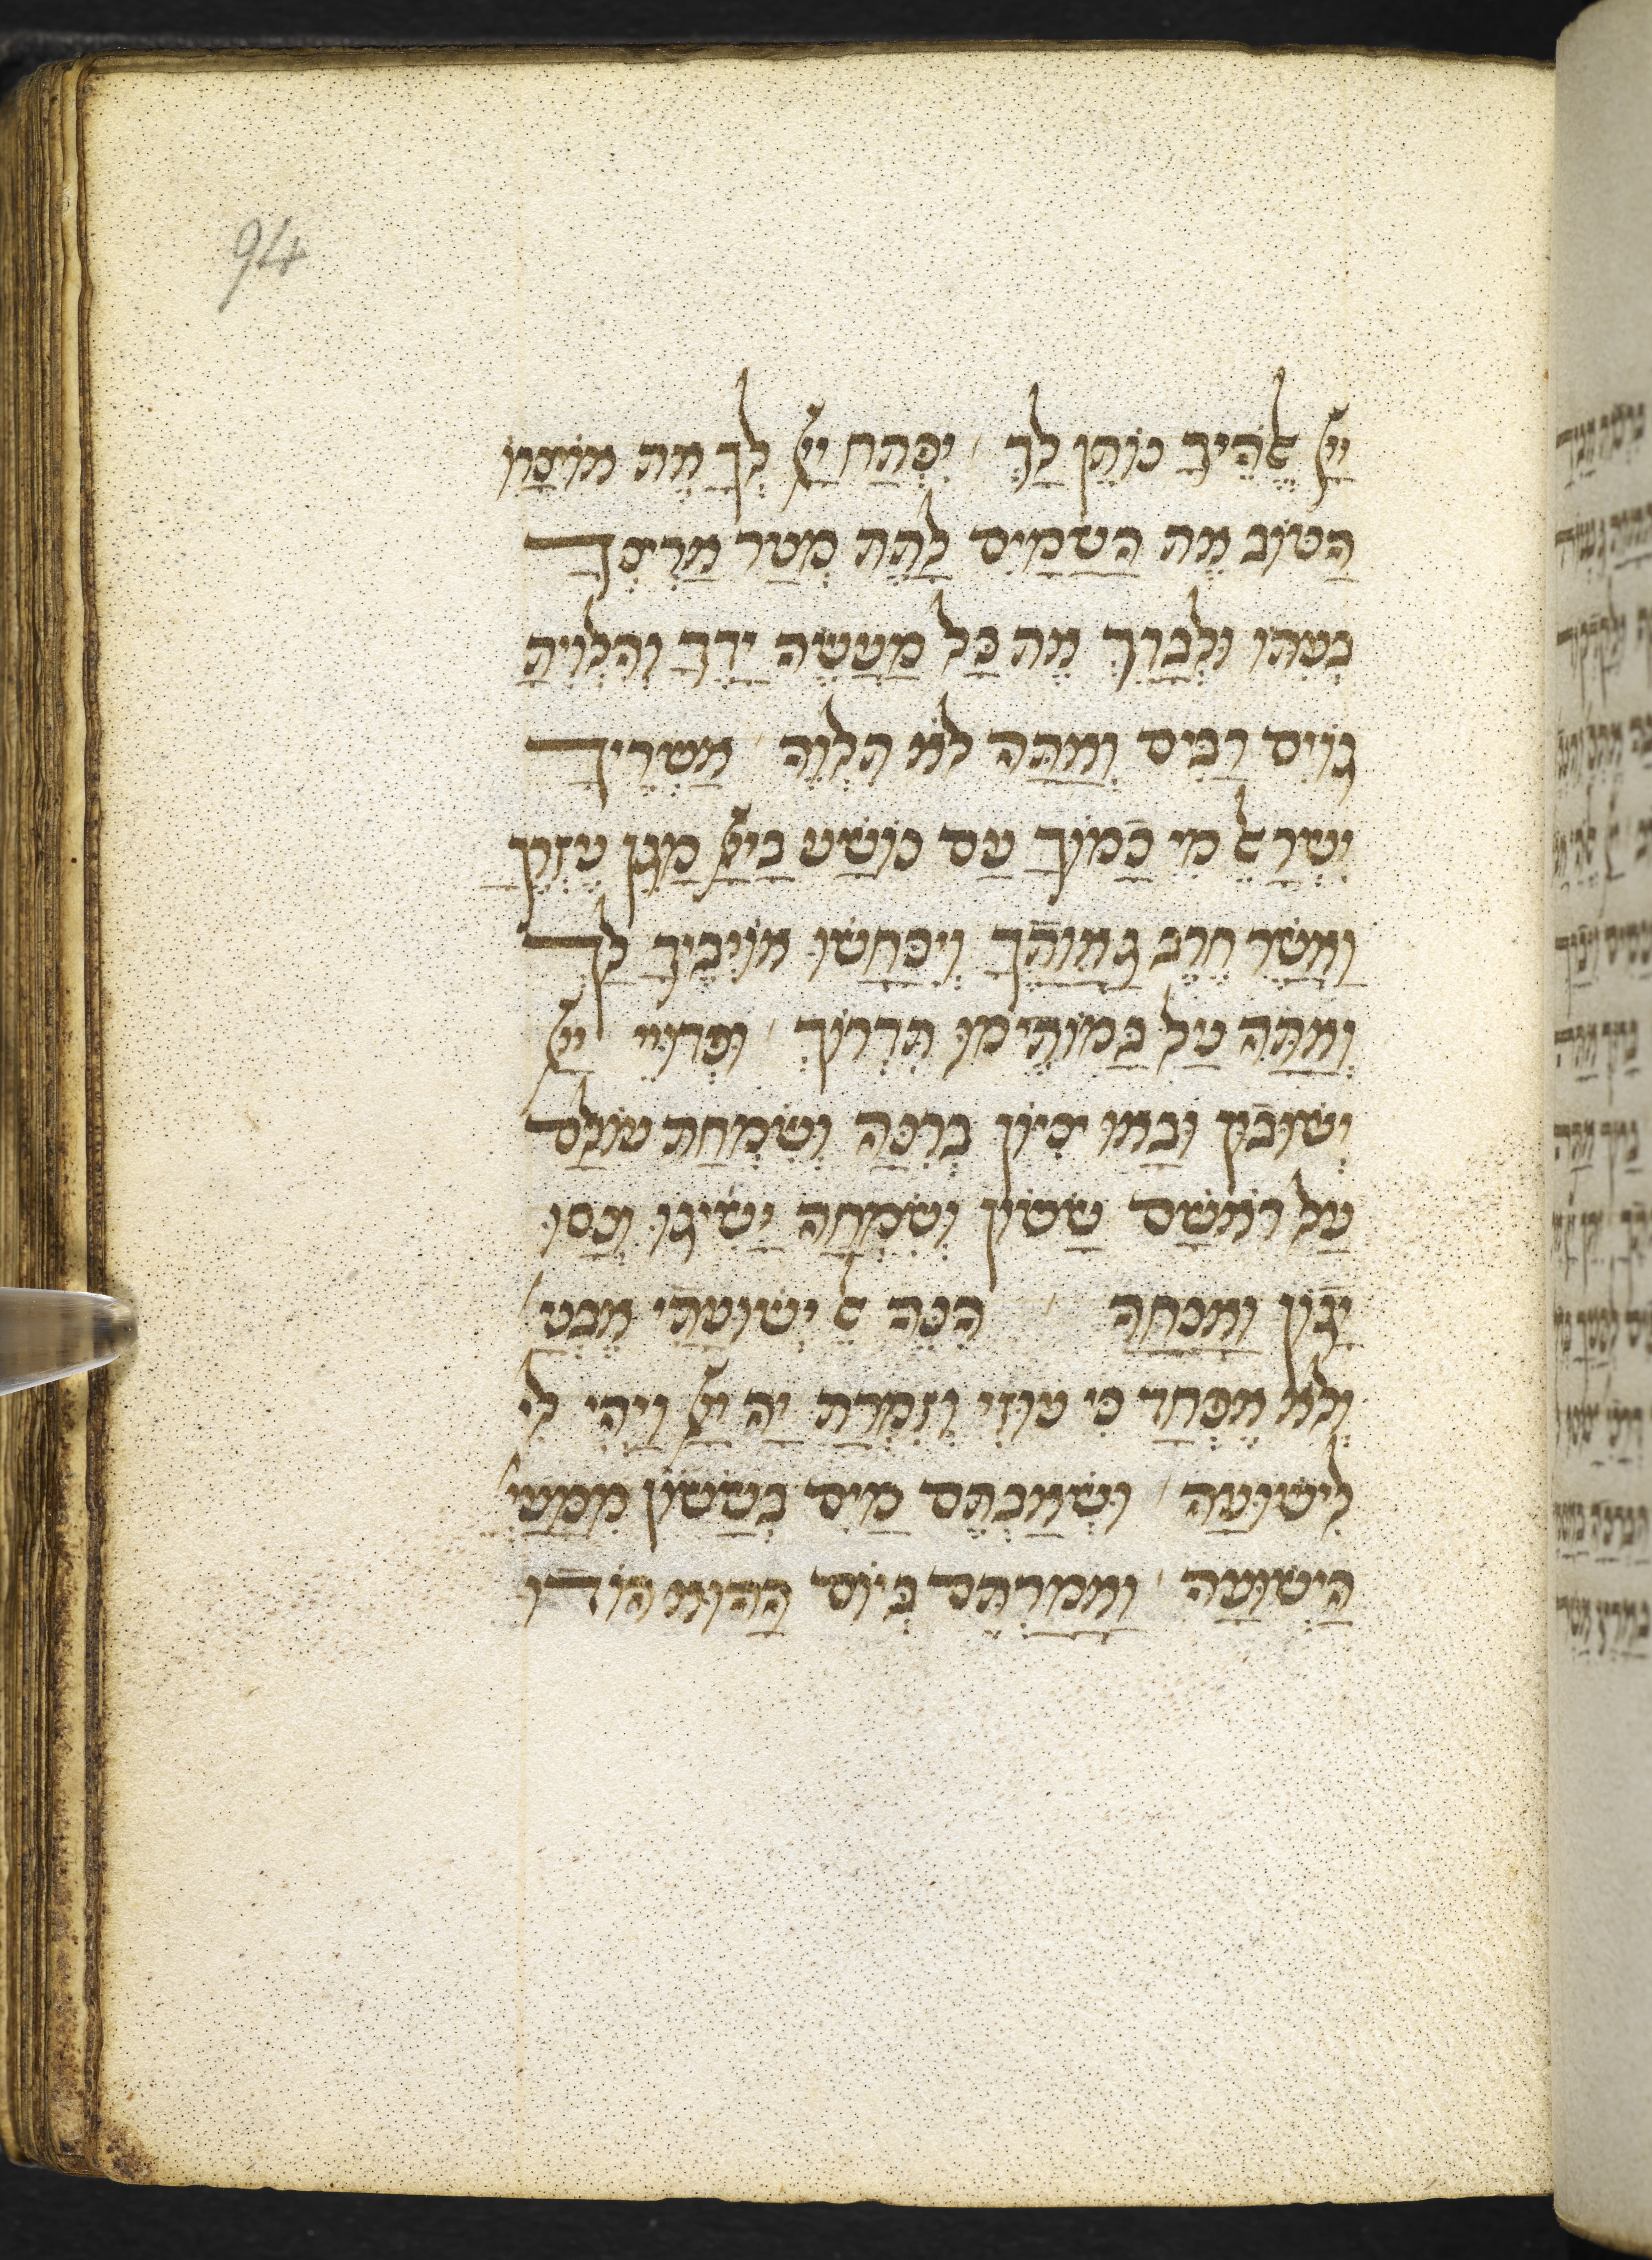 94
יְיָ אֱלֹהֶיךָ נוֹתֵן לָךְ׳ יִפְתַּח יְיָ לְךָ אֶת אוֹצָרוֹ
הַטּוֹב אֶת הַשָּׁמַיִם לָתֵת מְטַר אַרְצְךָ
בְּעִתּוֹ וּלְבָרֵךְ אֵת כָּל מַעֲשֵׂה יָדֶךָ וְהִלְוִיתָ
גּוֹיִם רַבִּים וְאַתָּה לֹא תִלְוֶה׳ אַשְׁרֶיךָ
יִשְׂרָאֵל מִי כָמוֹךָ עַם נוֹשַׁע בַּייָ מָגֵן עֶזְרֶךָ
וַאֲשֶׁר חֶרֶב גַּאֲוָתֶךָ וְיִכָּחֲשׁוּ אוֹיְבֶיךָ לָךְ
וְאַתָּה עַל בָּמוֹתֵימוֹ תִּדְרוֹךְ׳ וּפְדוּיֵי יְיָ
יְשׁוּבוּן וּבָאוּ צִיּוֹן בְּרִנָּה וְשִׂמְחַת עוֹלָם
עַל רֹאשָׁם שָׂשׂוֹן וְשִׂמְחָה יַשִּׂיגוּ וְנָסוּ
יָגוֹן וַאֲנָחָה׳ הִנֵּה אֵל יְשׁוּעָתִי אֶבְטַ׳
וְלֹא אֶפְחָד כִּי עוּזִּי וְזִמְרָת יָהּ יְיָ וַיְהִי לִי
לִישׁוּעָה׳ וּשְׁאַבְתֶּם מַיִם בְּשָׂשׂוֹן מִמַּעַיְ׳
הַיְשׁוּעָה׳ וַאֲמַרְתֶּם בְּיוֹם הַהוּא הוֹדוּ